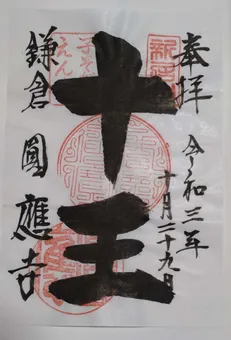 奉拜
令和三年
十月二十九日
十王
鎌倉圓應寺